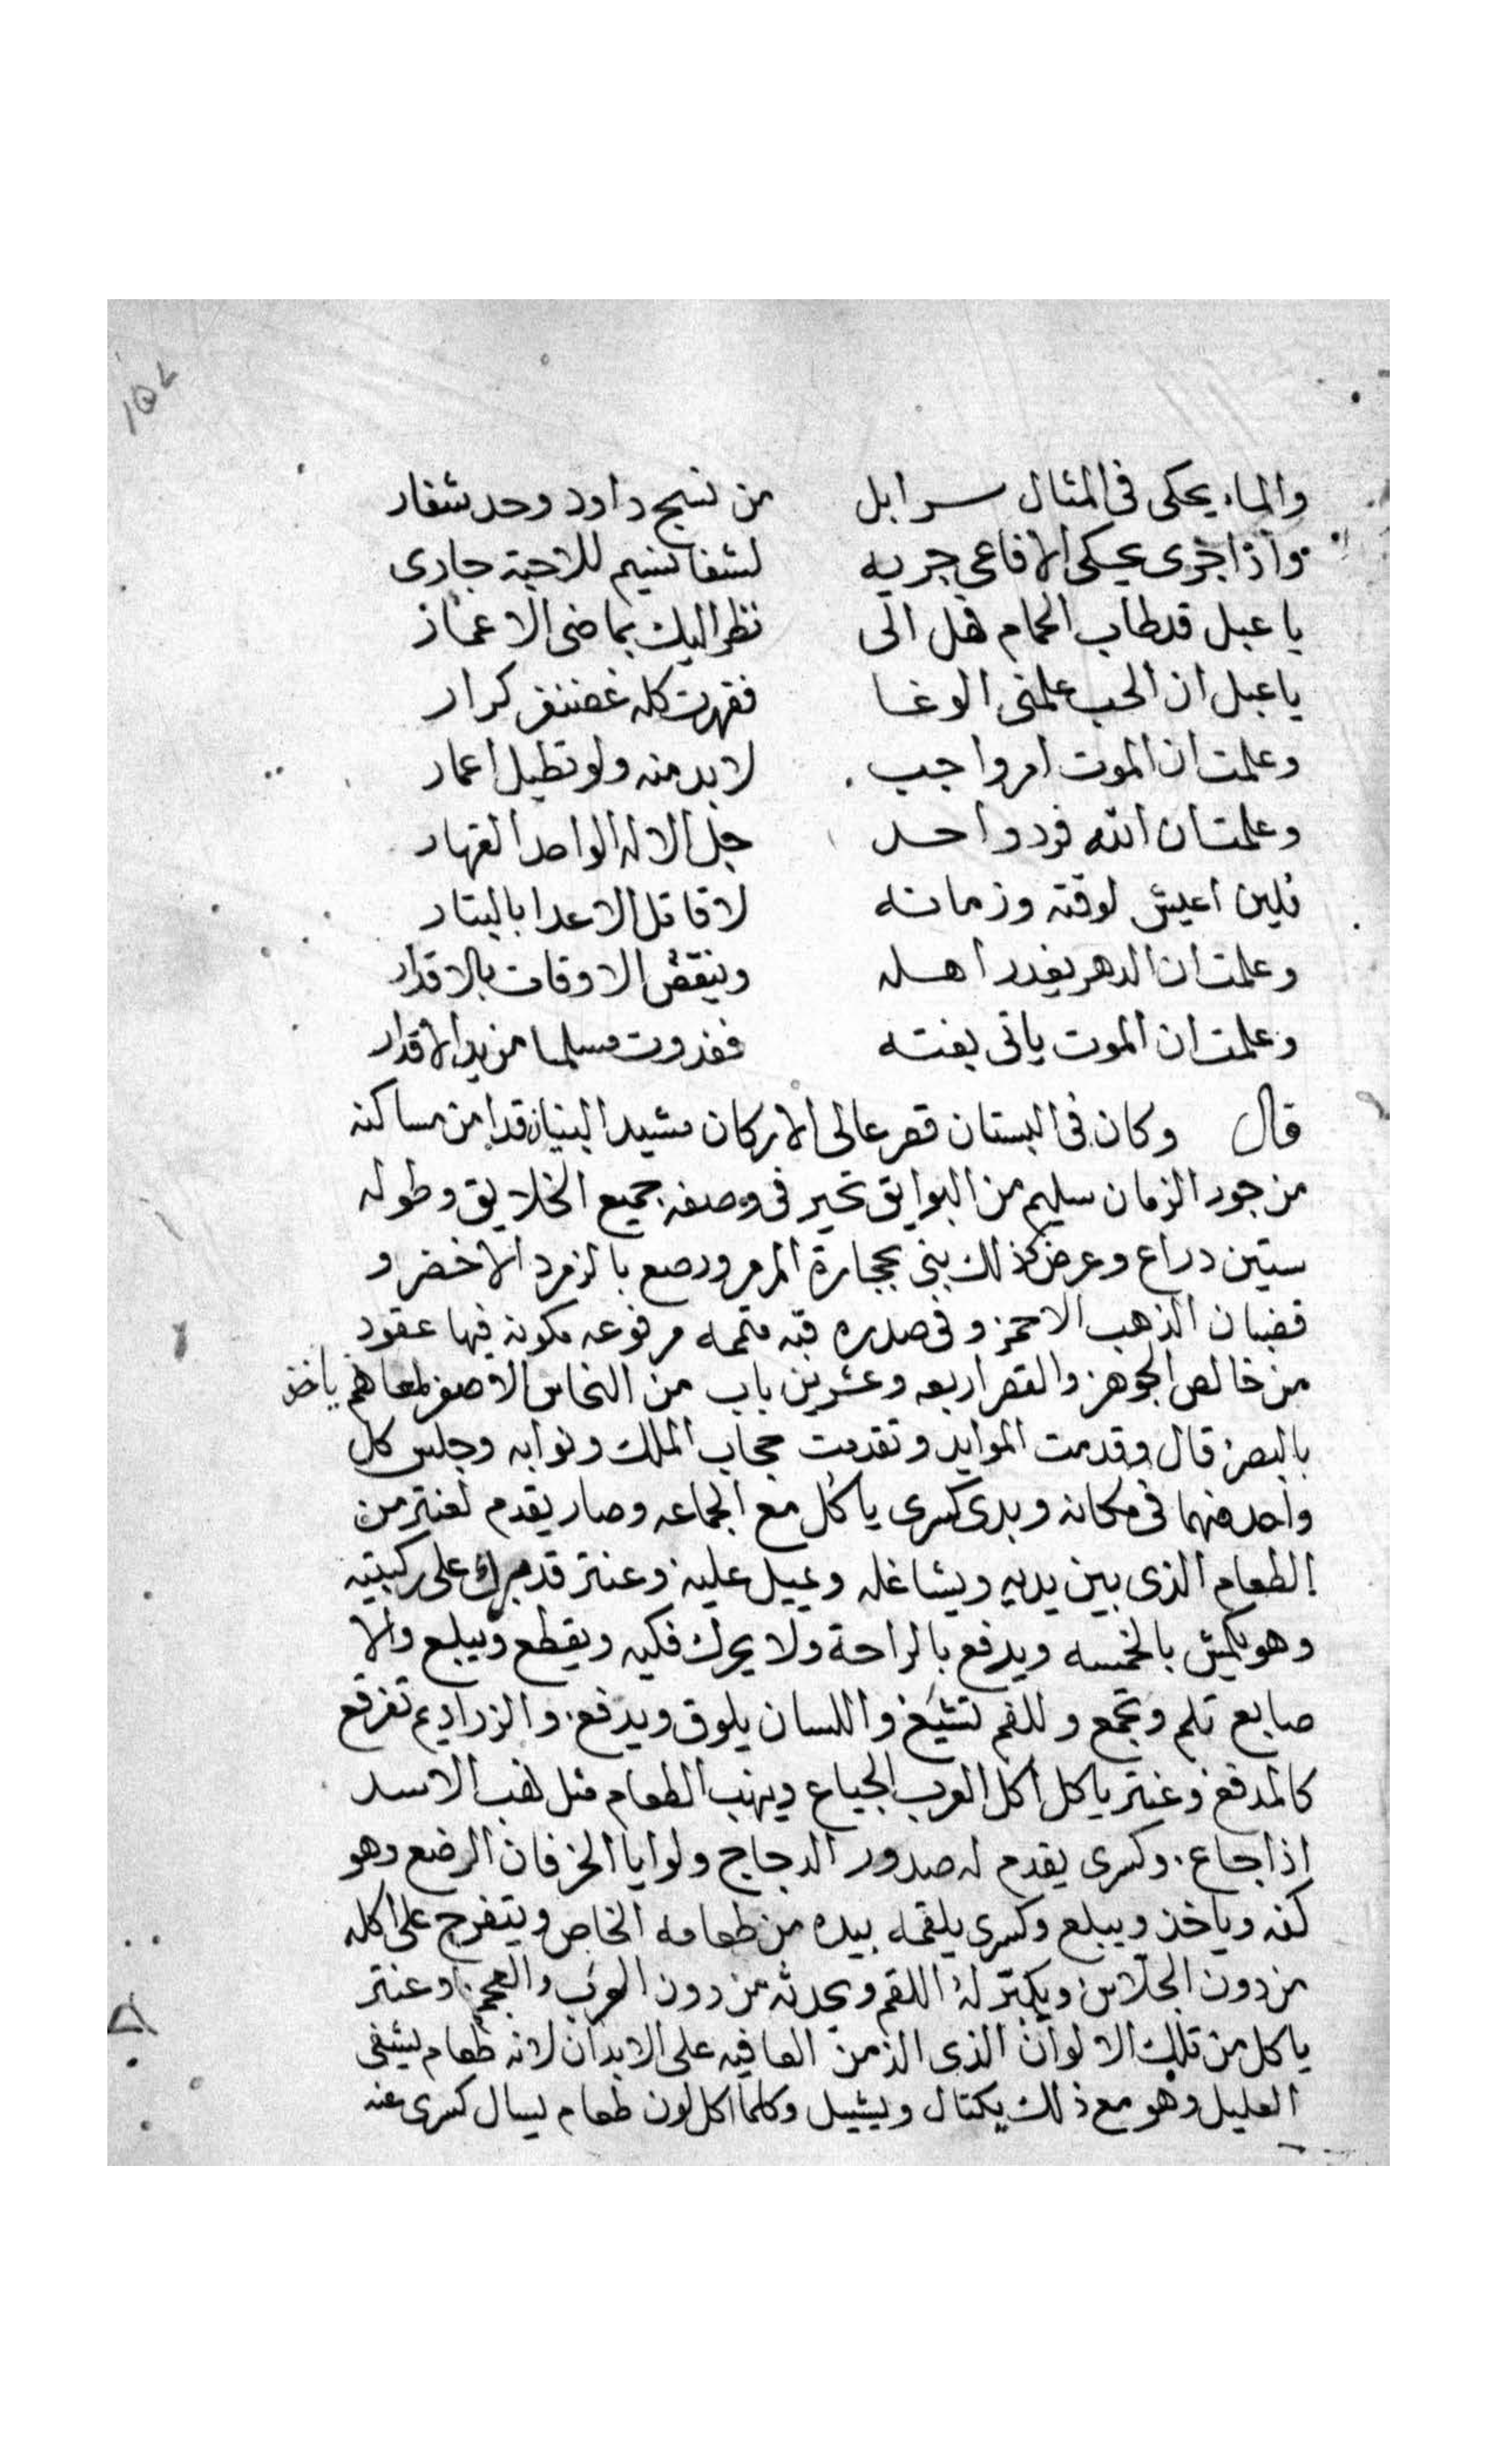 ١٥٧
والماء يحكى فى المثال سرابل من نسج داود وحد شفار
واذا جرى يحكى الافاعى جريه لشفا نسيم للاحبة جارى
يا عبل قد طاب الحمام فهل الى نظر اليك بماضى الاعمار
يا عبل ان الحب علمنى الوغا فقهرت كله غضنفر كرار
وعلمت ان الموت امر واجب لا بد منه ولو تطيل اعمار
وعلمت ان الله فرد واحد جل الاله الواحد القهار
فلين اعيش لوقته وزمانه لا قاتل الاعدا بالبتار
وعلمت ان الدهر يغدر اهله وينقض الاوقات بالاقدار
وعلمت ان الموت ياتى بغته فغدوت مسلما من يد الاقدار
قال وكان فى البستان قصر عالى الاركان مشيد البنيان قد امن ساكنه
من جور الزمان سليم من البوايق تحير فى وصفه جميع الخلايق وطوله
ستين دراع وعرض كذلك بنى بحجارة المرمر ورصع بالزمرد الاخضر و
قضبان الذهب الاحمر وفى صدره قبه متممه مرفوعه مكونه فيها عقود
من خالص الجوهر والقصر اربعه وعشرين باب من النحاس الاصفر لمعاهم ياخذ
بالبصر قال وقدمت الموايد وتقدمت حجاب الملك ونوابه وجلس كل
واحد منهما فى مكانه وبدى كسرى ياكل مع الجماعه وصار يقدم لعنتر من
الطعام الذى بين يديه ويشاغله ويميل عليه وعنتر قد برك على ركبتيه
وهو يكمش بالخمسه ويدفع بالراحة ولا يحرك فكيه ويقطع ويبلع والا
صابع تلم وتجمع وللفم تشيع واللسان يلوق ويدفع والزراديم تفرقع
كالمدفع وعنتر ياكل اكل العرب الجياع وينهب الطعام مثل نهب الاسد
اذا جاع وكسرى يقدم له صدور الدجاج ولوايا الخرفان الرضع وهو
كنه وياخذ ويبلع وكسرى يلقمه بيده من طعامه الخاص ويتفرج على اكله
من دون الجلاس ويكبر له اللقم ويحدثه من دون العرب والعجم وعنتر
ياكل من تلك الالوان الذى الذ من العافيه على الابدان لانه طعام يشفى
العليل وهو مع ذلك يكتال ويشيل وكلما اكل لون طعام يسال كسرى عنه